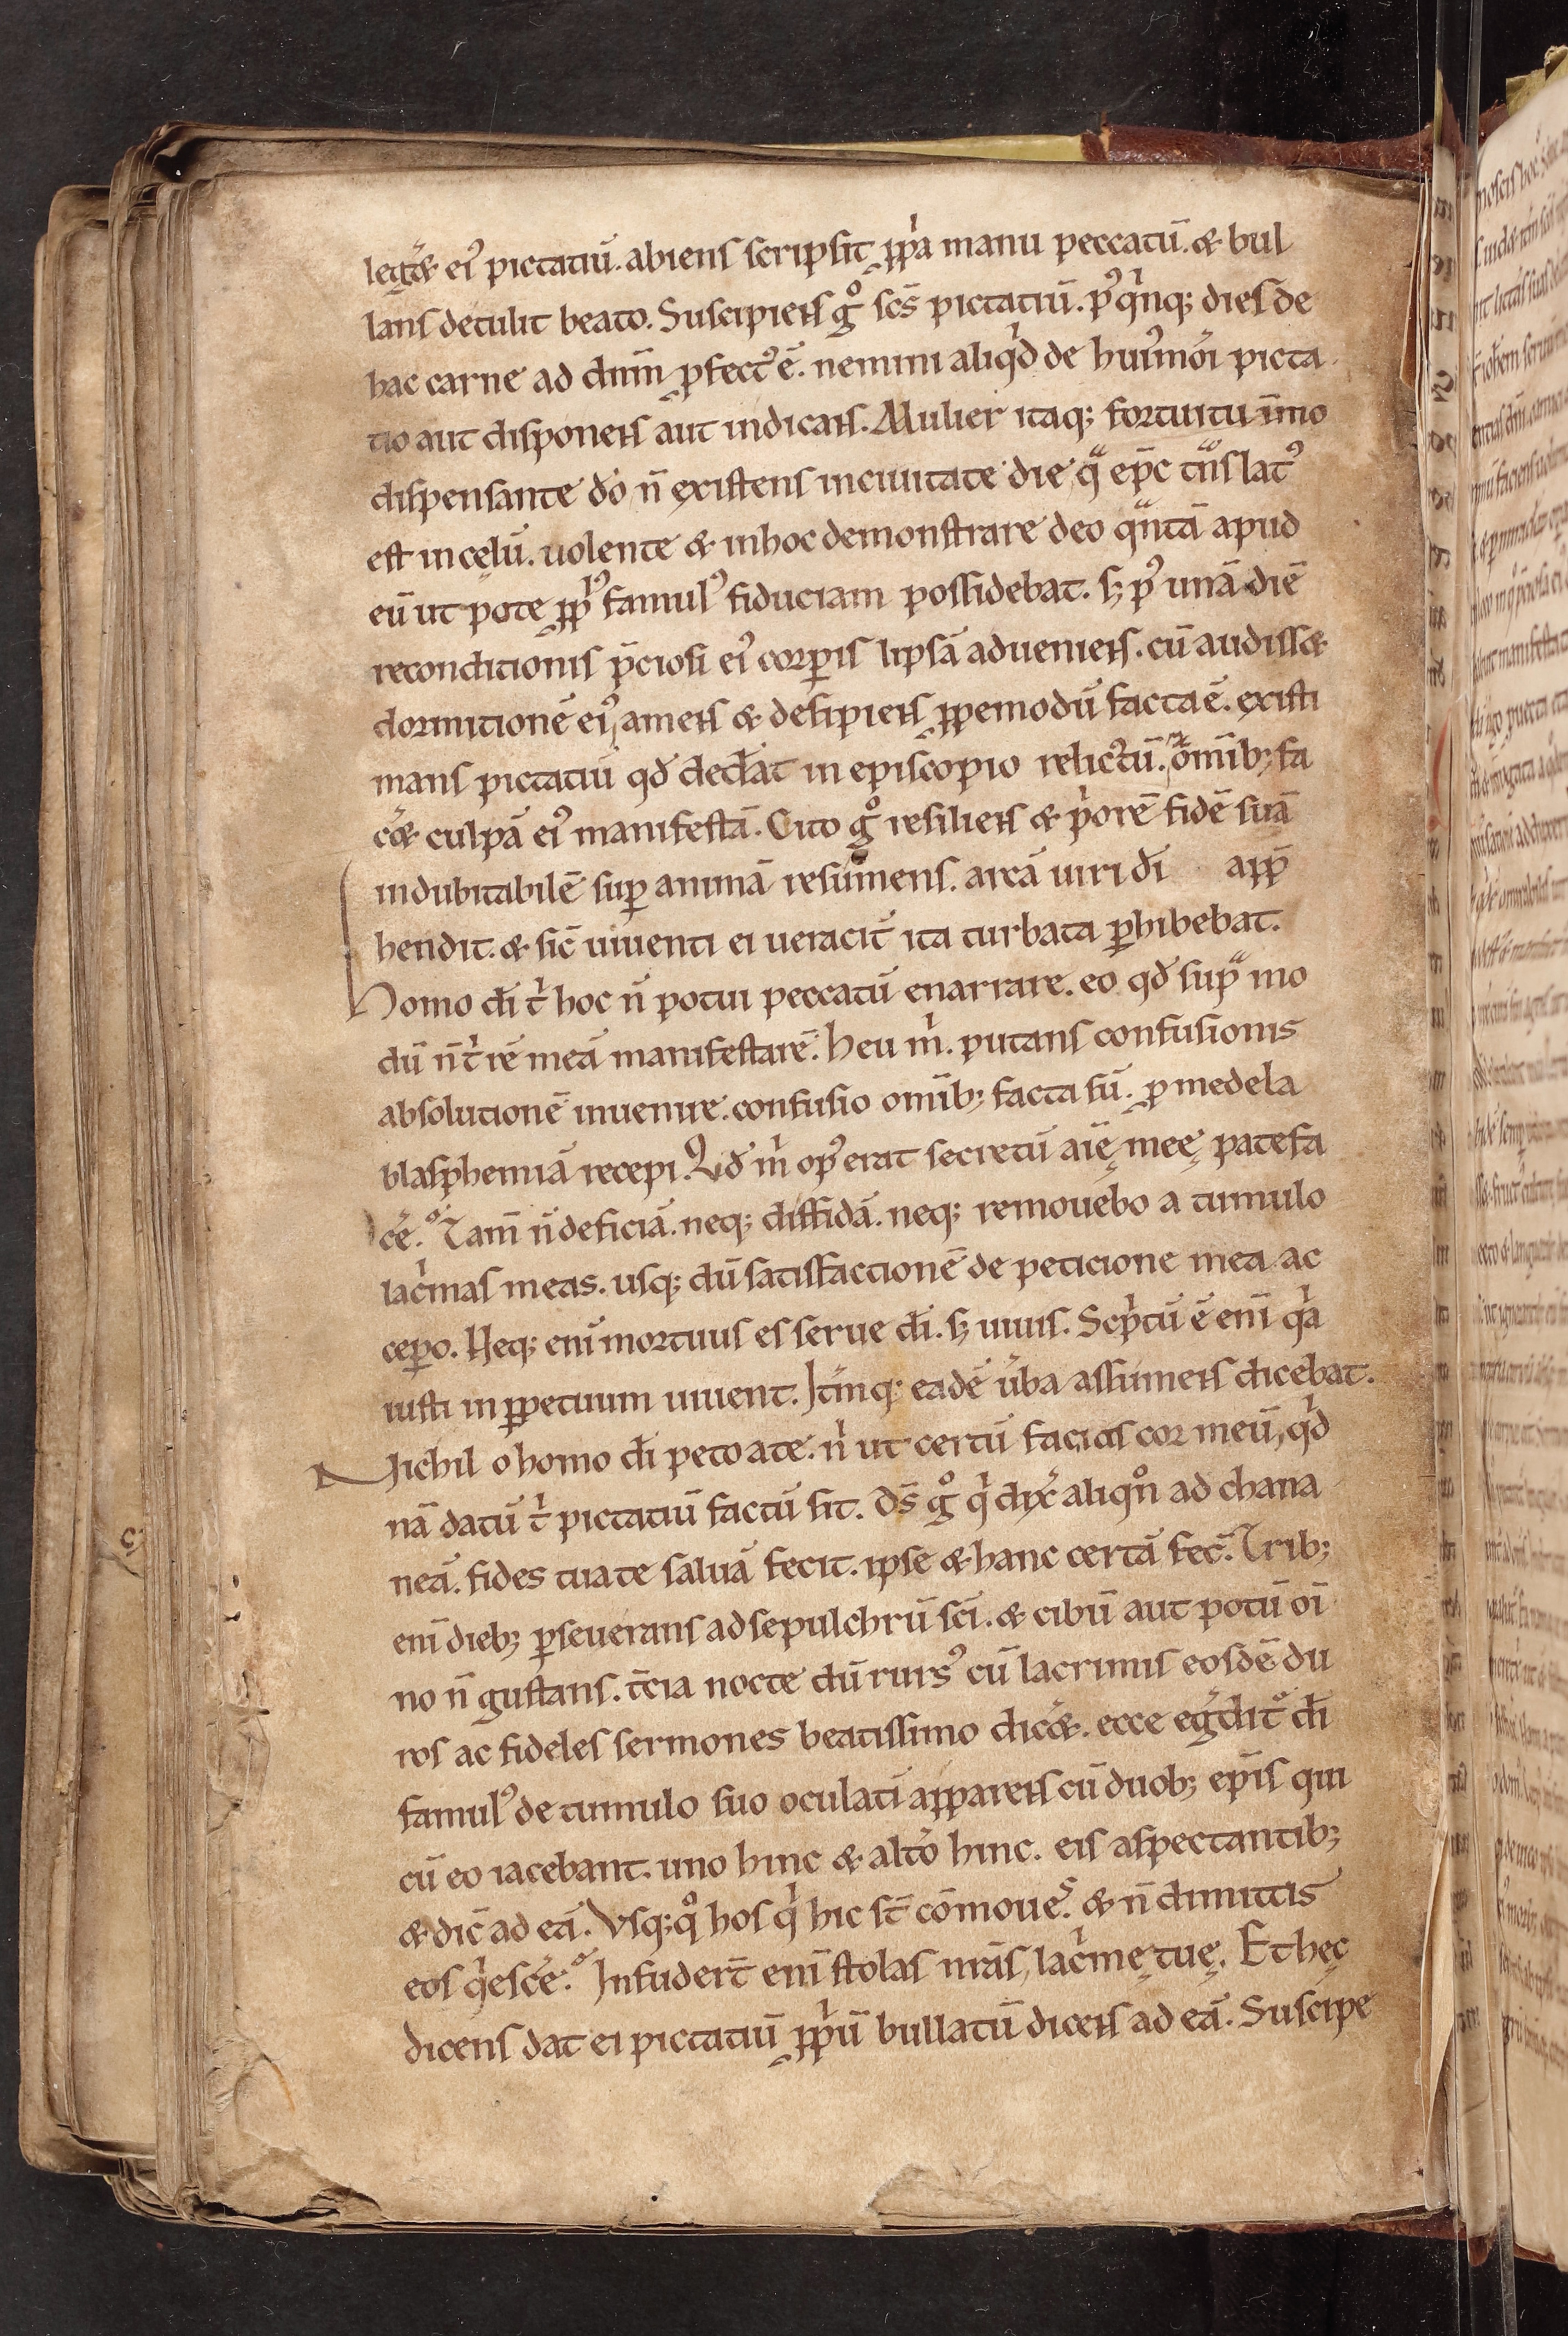 legat̃& ei᷒ pictatiũ. abiens scripsit ꝓpͥa manu peccatũ. & bul
lans detulit beato. Suscipiens gͦ scs̄ pictatiũ. p᷒ qͥnq; dies de
hac carne ad dñm ꝓfect᷒ ẽ. nemini aliqͥd de hui᷒mõi picta
tio aut disponens aut indicans. Mulier itaq; fortuitu im̄mo
dispensante dõ ñ existens inciuitate die qͣ ep̄c tnͣslat᷒
est incęlũ. uolente & inhoc demonstrare deo qͣntã apud
eũ ut pote ꝓpͥ᷒ famul᷒ fiduciam possidebat. sꝫ p᷒ unã diẽ
reconditionis p̄ciosi ei᷒ corꝑis lipsã adueniens. cũ audiss&
dormitionẽ ei᷒, amens & desipiens ꝓpemodũ facta ẽ. existi
mans pictatiũ qđ dederat in episcopio relictũ. om̄ib; fa
c̃& culpã ei᷒ manifestã. Cito gͦ resiliens & pͥorẽ fidẽ suã
indubitabilẽ suꝑ animã resumens. arcã uiri dī app̄
hendit. & sic̄ uiuenti ei ueracit̃ ita turbata ꝑhibebat.
Homo dī tͥ hoc ñ potui peccatũ enarrare. eo qđ supͣ mo
dũ ñ tͥ rẽ meã manifestarẽ. Heu mͥ. putans confusionis
absolutionẽ inuenire. confusio om̄ib; facta sũ. ꝓ medela
blasphemiã recepi. Qđ mͥ op᷒ erat secretũ aīę meę patefa
c̃e. Tam̄ ñ deficiã. neq; diffidã. neq; remouebo a tumulo
lacͥmas meas. usq; dũ satisfactionẽ de peticione mea ac
ceꝑo. Neq; eni᷒ mortuus es serue dī. sꝫ uiuis. Scpͥtũ ẽ enī qͥa
iusti in ꝑpetuum uiuent. Itm̃q; eadẽ ũba assumens dicebat.
Nichil o homo dī peto a te. nͥ ut certũ facias cor meũ, qͥd
nã datũ tͥ pictatiũ factũ sit. Ds̄ gͦ qͥ dix̃ aliqͦn ad chana
neã. fides tua te saluã fecit. ipse & hanc certã fec̃. Trib;
enī dieb; ꝑseuerans ad sepulchrũ scī. & cibũ aut potũ oī
no ñ gustans. t̃cia nocte dũ rurs᷒ cũ lacrimis eosdẽ du
ros ac fideles sermones beatissimo dic̃&. ecce egͬdit̃ dī
famul᷒ de tumulo suo oculatī apparens cũ duob; ep̄is qui
cũ eo iacebant. uno hinc & alto̾ hinc. eis aspectantib;
& dic̄ ad eã. Vsq; qͦ hos qͥ hic st̄ cōmoues. & ñ dimittis
eos qͥesc̃e. Infudert̄ enī stolas nr̄as, lacͥmę tuę. Et hęc
dicens dat ei pictatiũ ꝓpͥũ bullatũ dicens ad eã. Suscipe